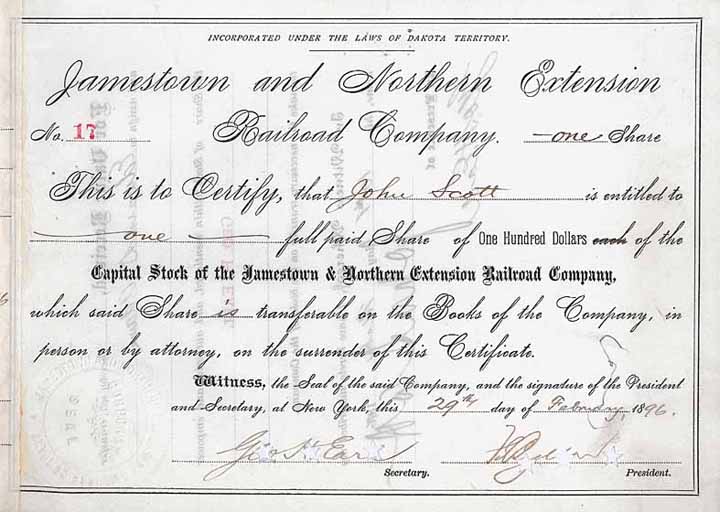 INCORPORATED UNDER THE LAWS OF DAKOTA TERRITORY.
Jamestown and Northern Extension
No. 17 Railroad Company. one Share
This is to Certify, that John Scott is entitled to
one full paid Share of One Hundred Dollars each of the
Capital Stock of the Jamestown & Northern Extension Railroad Company,
which said Share is transferable on the Books of the Company, in
person or by attorney, on the surrender of this Certificate.
Witness, the Seal of the said Company, and the signature of the President
and Secretary, at New York, this 29th day of February, 1896.
Geo. H. Earl
Secretary. President.